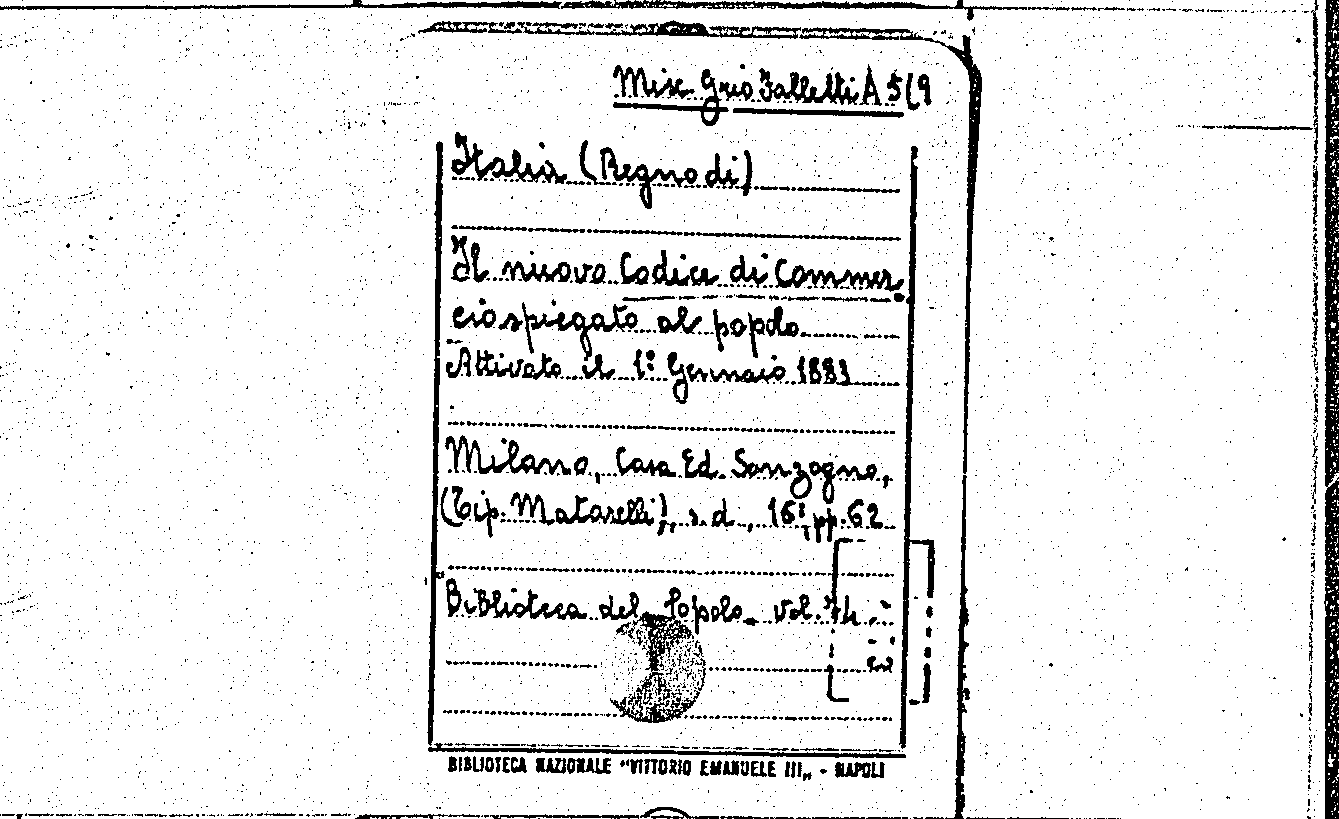 Misc. Grio Falletti A 5(9
Italia (Regno di)
Il nuovo Codice di Commer.
cio spiegato al popolo
Attivato il 1° Gennaio 1883
Milano, Casa Ed. Sonzogno,
(Tip. Matarelli), s.d., 16°, pp. 62
Biblioteca del Popolo vol.
BIBLIOTECA NAZIONALE "VITTORIO EMANUELE III„ - NAPOLI